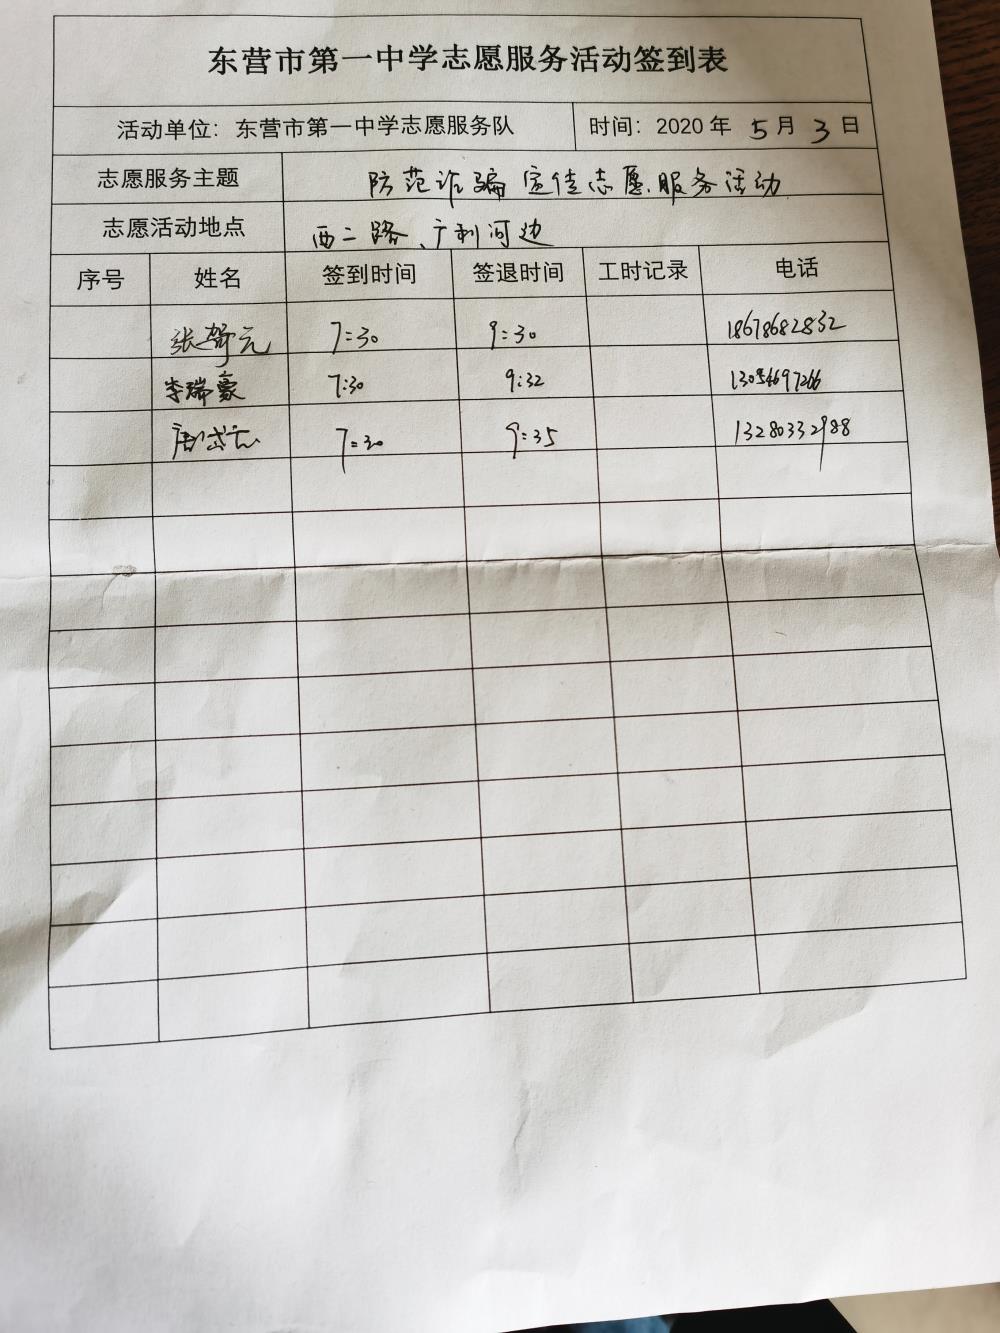 东营市第一中学志愿服务活动签到表
活动单位：东营市第一中学志愿服务队 时间：2020 年 5 月 3 日
志愿服务主题 防范诈骗宣传志愿服务活动
志愿活动地点 西二路、广利河边
序号 姓名 签到时间 签退时间 工时记录 电话
张 元 7:30 9:30 18678682832
李瑞豪 7:30 9:32 13054697266
唐 7:30 9:35 13280332988